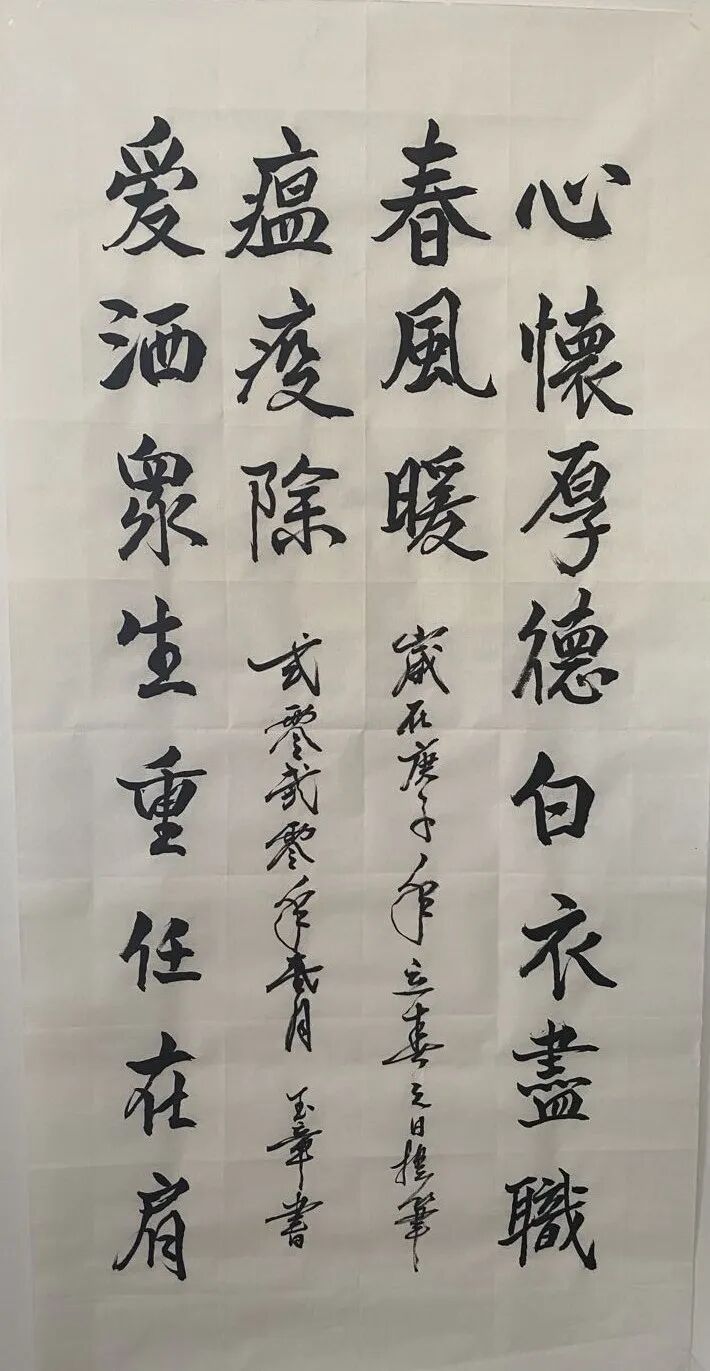 心懷厚德白衣盡職
春風暖
歲在庚子年立春之日操筆
瘟疫除
貳零貳零年貳月 玉章書
爱洒眾生重任在肩